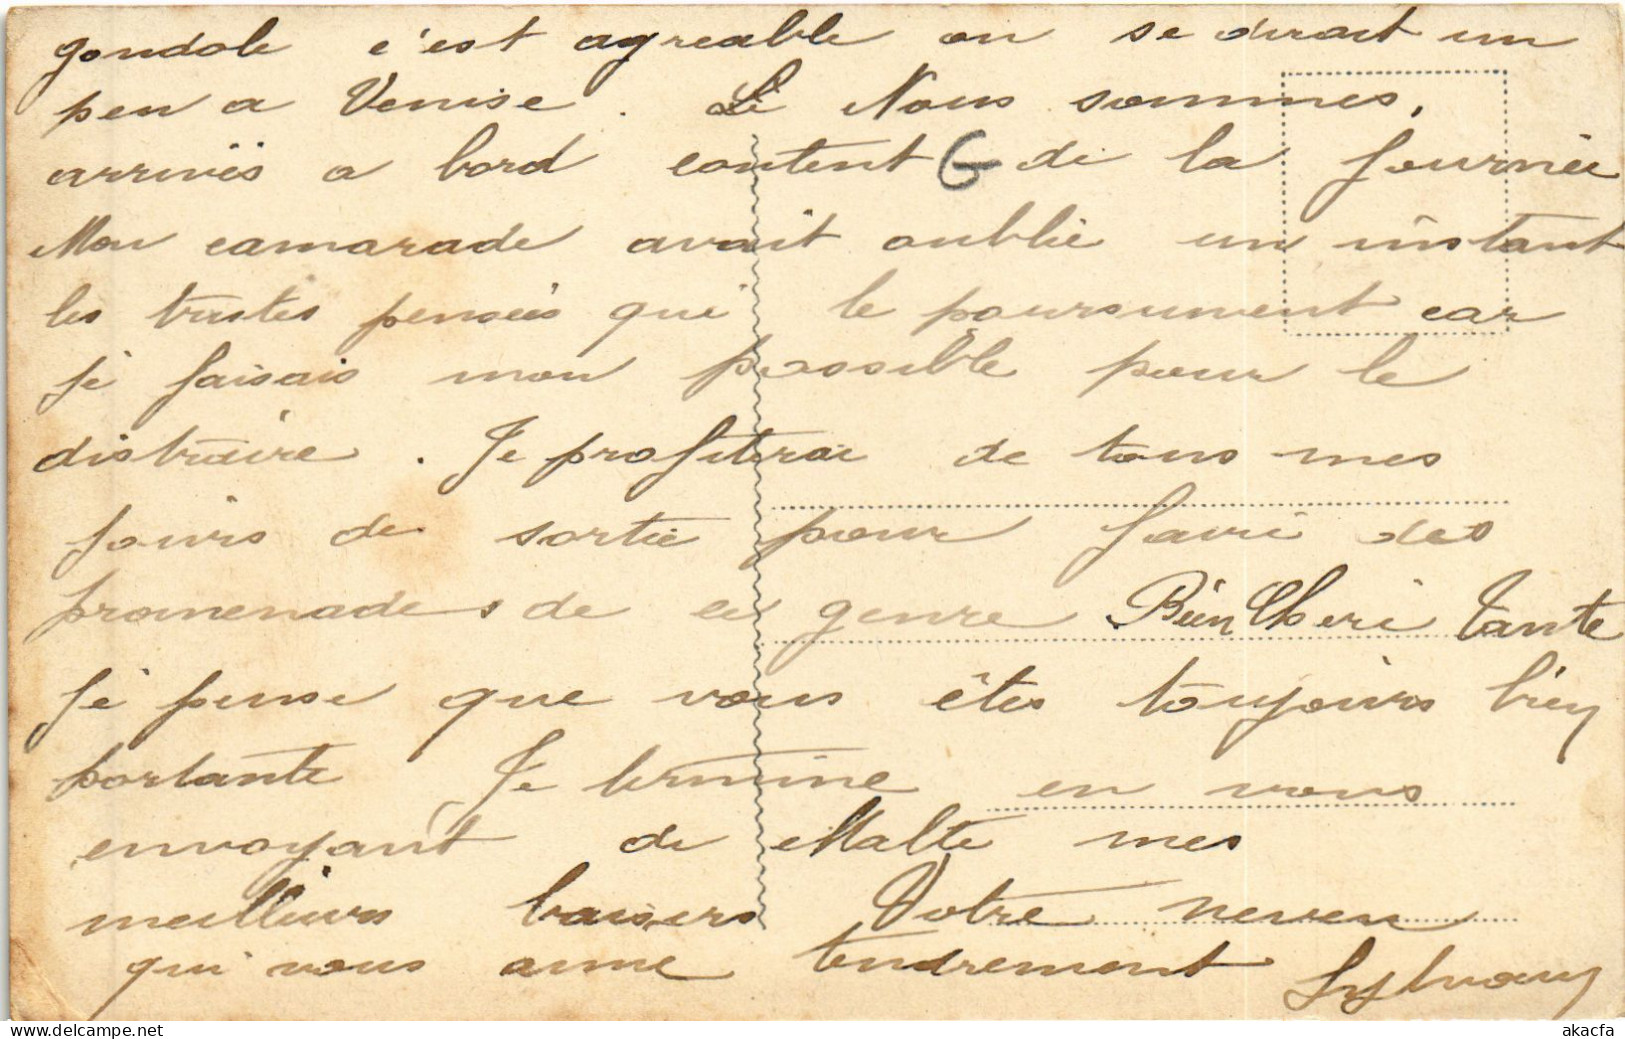 gondole c'est agreable on se dirait un
peu a Venise. Nous sommes,
arrivés a bord content de la journée
Mon camarade avait oublié un instant
les tristes pensées qui le poursuivent car
je faisais mon possible pour le
distraire. Je profiterai de tous mes
jours de sortie pour faire des
promenades de ce genre Bien Cheri Tante
Je pense que vous êtes toujours bien
portante Je termine en vous
envoyant de Malte mes
meilleurs baisers Votre neveu
qui vous aime tendrement Sylvain
akacfa
https://www.delcampe.net